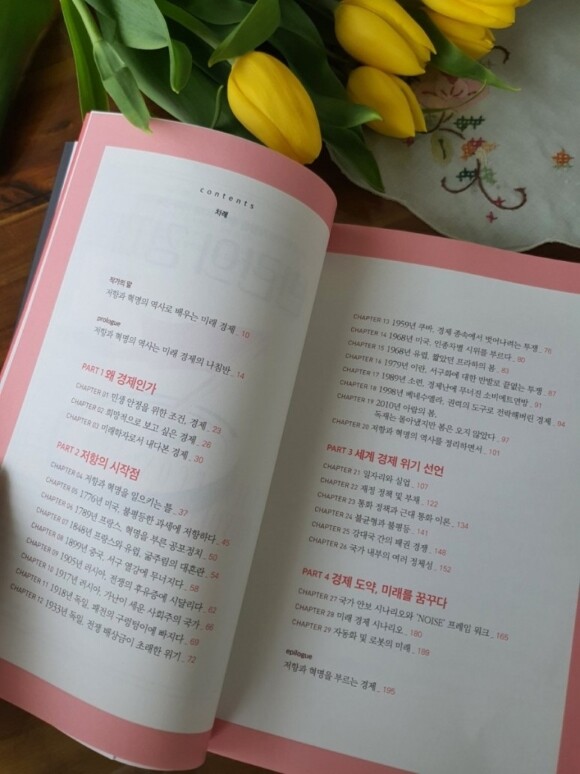 contents
차례
작가의 말
저항과 혁명의 역사로 배우는 미래 경제_10
prologue
저항과 혁명의 역사는 미래 경제의 나침반_14
PART 1 왜 경제인가
CHAPTER 01 민생 안정을 위한 조건, 경제_23
CHAPTER 02 희망적으로 보고 싶은 경제_26
CHAPTER 03 미래학자로서 내다본 경제_30
PART 2 저항의 시작점
CHAPTER 04 저항과 혁명을 일으키는 틀_37
CHAPTER 05 1776년 미국, 불평등한 과세에 저항하다_45
CHAPTER 06 1789년 프랑스, 혁명을 부른 공포정치_50
CHAPTER 07 1848년 프랑스와 유럽, 굶주림의 대혼란_54
CHAPTER 08 1899년 중국, 서구 열강에 무너지다_58
CHAPTER 09 1905년 러시아, 전쟁의 후유증에 시달리다_62
CHAPTER 10 1917년 러시아, 가난이 세운 사회주의 국가_66
CHAPTER 11 1918년 독일, 패전의 구렁텅이에 빠지다_69
CHAPTER 12 1933년 독일, 전쟁 배상금이 초래한 위기_72
CHAPTER 13 1959년 쿠바, 경제 종속에서 벗어나려는 투쟁_76
CHAPTER 14 1968년 미국, 인종차별 시위를 부르다_80
CHAPTER 15 1968년 유럽, 짧았던 프라하의 봄_83
CHAPTER 16 1979년 이란, 서구화에 대한 반발로 끝없는 투쟁_87
CHAPTER 17 1989년 소련, 경제난에 무너진 소비에트연방_91
CHAPTER 18 1998년 베네수엘라, 권력의 도구로 전락해버린 경제_94
CHAPTER 19 2010년 아랍의 봄,
독재는 몰아냈지만 봄은 오지 않았다_97
CHAPTER 20 저항과 혁명의 역사를 정리하면서_101
PART 3 세계 경제 위기 선언
CHAPTER 21 일자리와 실업_107
CHAPTER 22 재정 정책 및 부채_122
CHAPTER 23 통화 정책과 근대 통화 이론_134
CHAPTER 24 불균형과 불평등_141
CHAPTER 25 강대국 간의 패권 경쟁_148
CHAPTER 26 국가 내부의 여러 정체성_152
PART 4 경제 도약, 미래를 꿈꾸다
CHAPTER 27 국가 안보 시나리오와 'NOISE' 프레임 워크_165
CHAPTER 28 미래 경제 시나리오_180
CHAPTER 29 자동화 및 로봇의 미래_189
epilogue
저항과 혁명을 부르는 경제_195